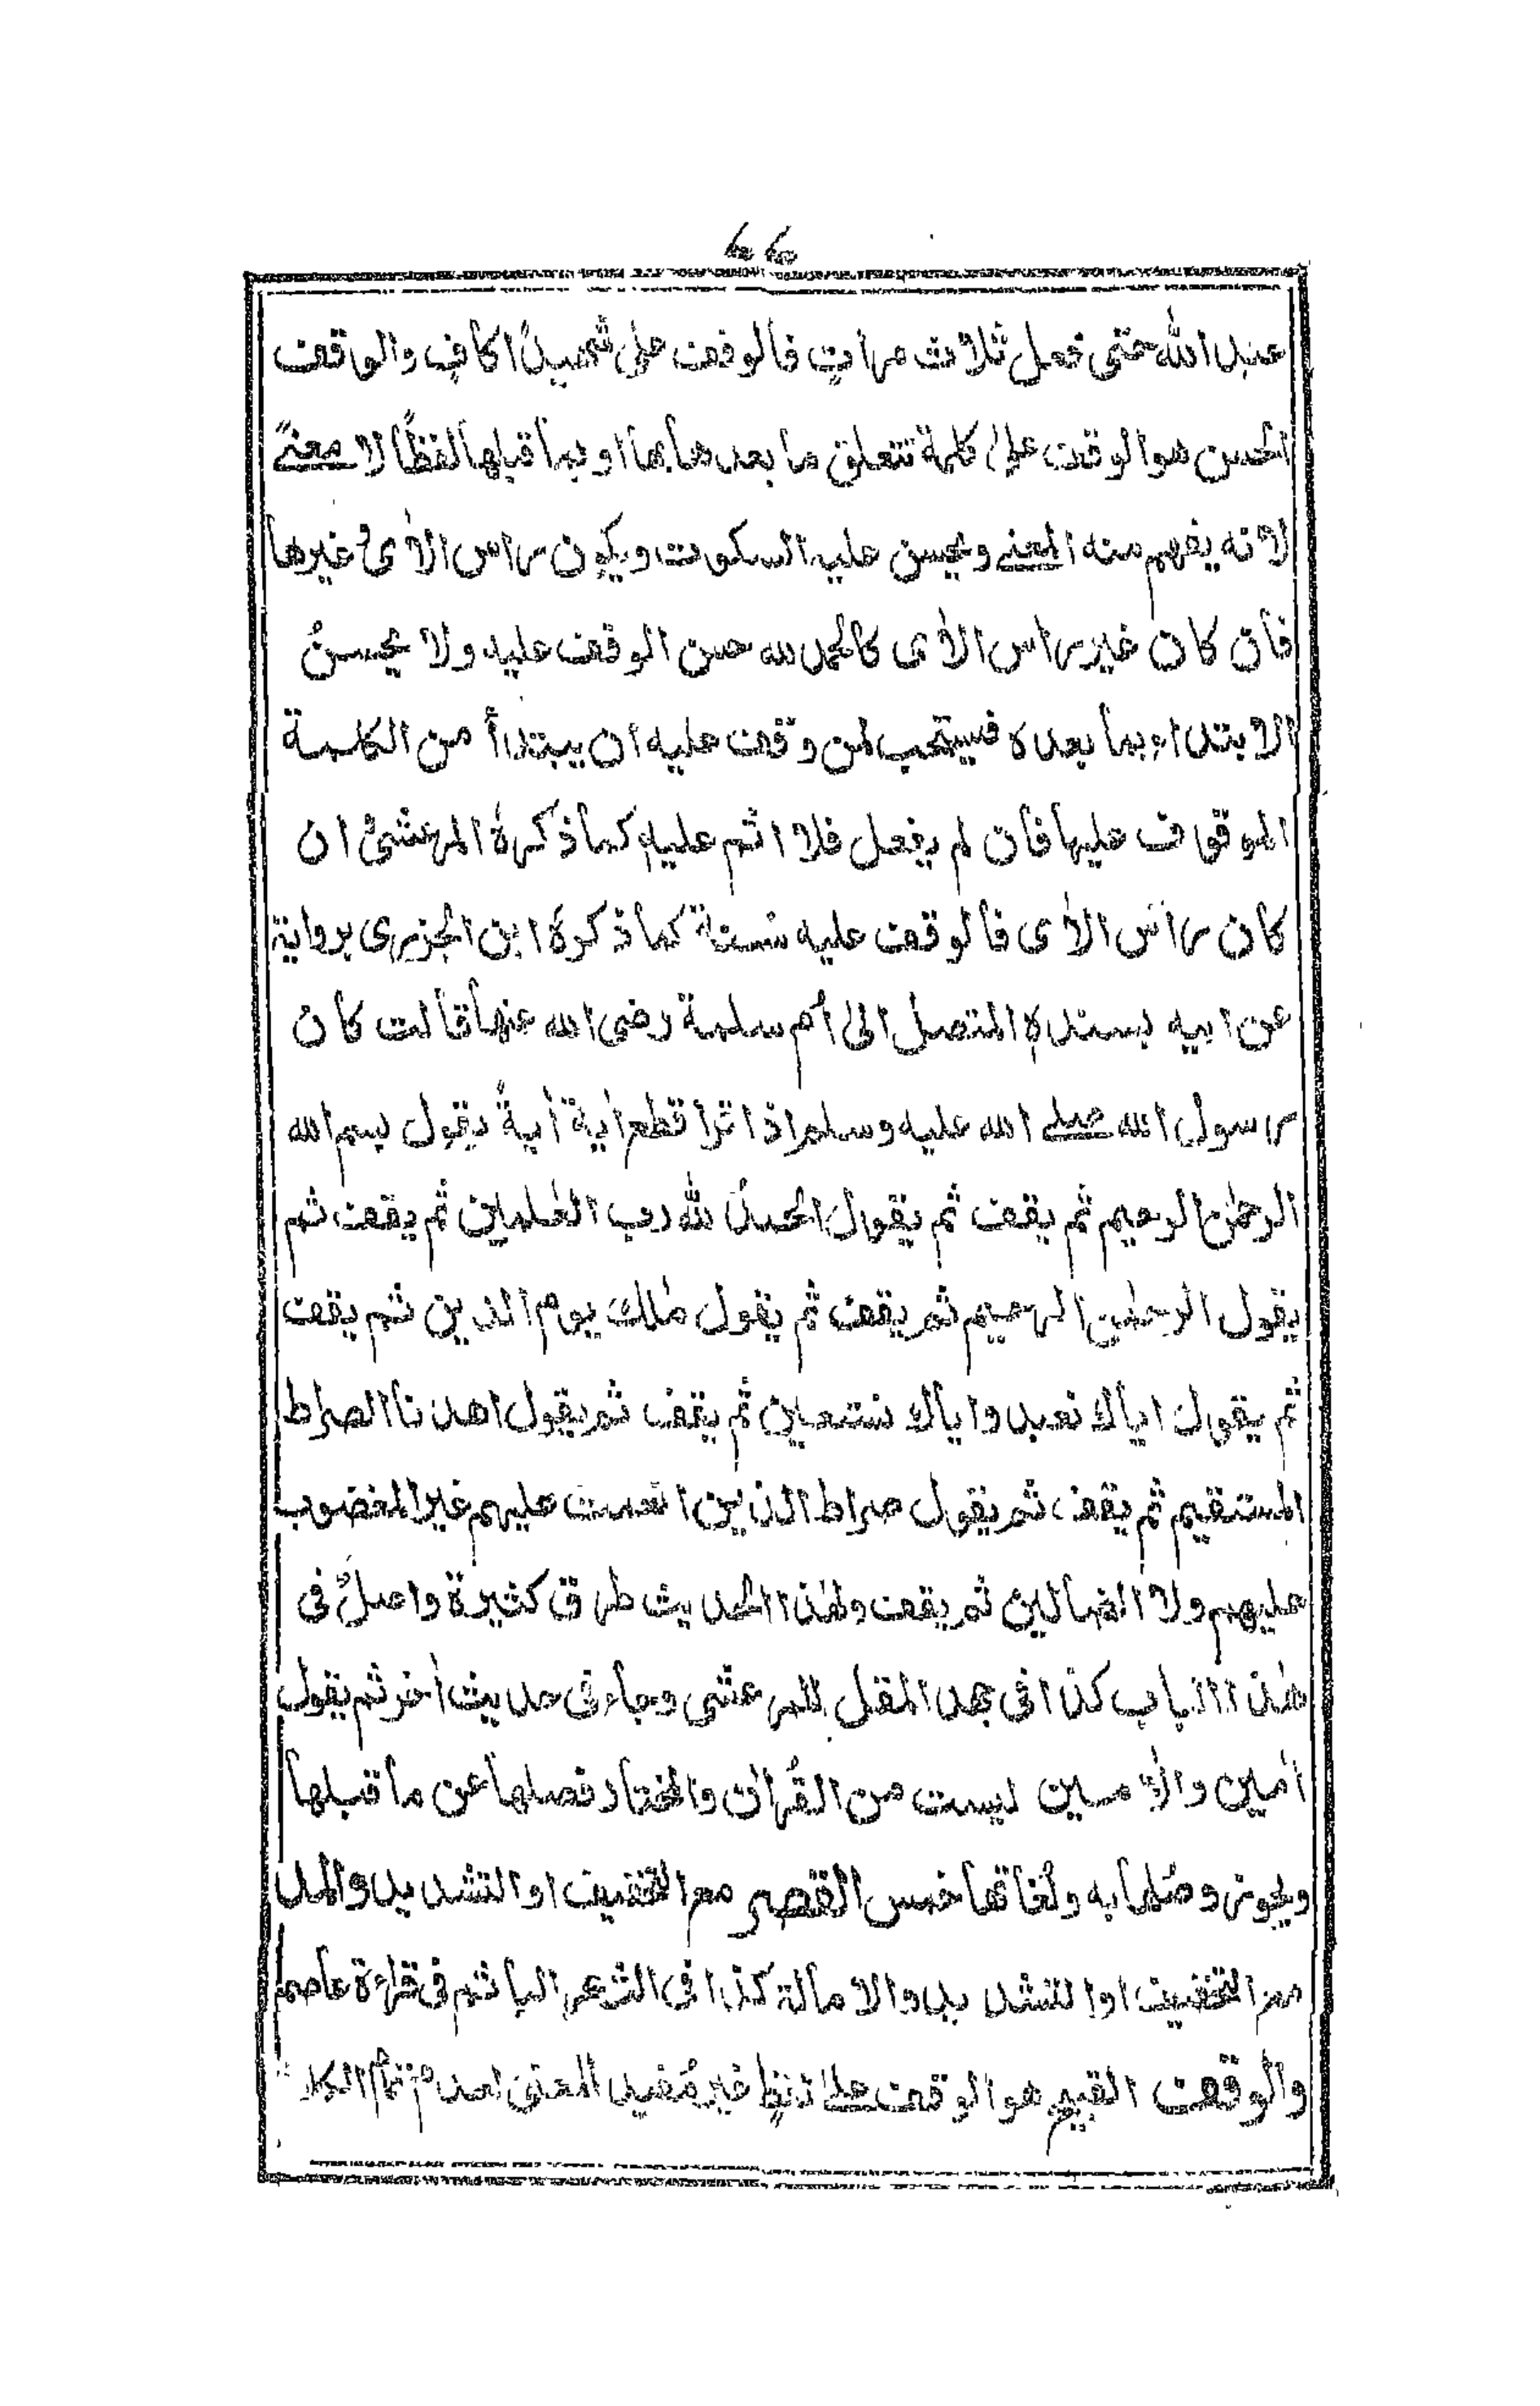 ٤٤
عبد الله حتى فعل ثلاث مراتٍ فالوقف على شهيدًا كافٍ والوقف
الحسن هو الوقف على كلمة تتعلق ما بعدها بها او بما قبلها لفظًا لا معنےً
لانه يفهم منه المعنے ويحسن عليه السكوت ويكون راس الاٰى وغيرها
فان كان غير راس الاٰى كالحمد لله حسن الوقف عليه ولا يحسنُ
الابتداء بما بعده فيستحب لمن وقف عليه ان يبتدأ من الكلمة
الموقوف عليها فان لم يفعل فلا اثم عليهِ كما ذكرهُ المرعشىُ ان
كان راس الاٰى فالوقف عليه سُنة كما ذكرهُ ابن الجزرى برواية
عن ابيه بسندهٖ المتصل الىٰ اُم سلمة رضى الله عنها قالت كان
رسول الله صلے الله عليه وسلم اذا قرأ قطع اٰية اٰيةً يقول بسم الله
الرحمٰن الرحيم ثم يقف ثم يقول الحمدُ لله رب العٰلمين ثم يقف ثم
يقول الرحمٰن الرحيم ثم يقف ثم يقول مٰلك يوم الدين ثم يقف
ثم يقول اياك نعبد واياك نستعين ثم يقف ثم يقول اهدنا الصراط
المستقيم ثم يقف ثم يقول صراط الذين انعمت عليهم غير المغضوب
عليهم ولا الضالين ثم يقف ولهٰذا الحديث طرق كثيرة واصلٌ فى
هٰذا الباب كذا فى جهد المقل للمرعشى وجاء فى حديث اٰخر ثم يقول
اٰمين والاٰمين ليست من القُراٰن والمختار فصلها عن ما قبلها
ويجوز وصُلها به ولُغاتها خمس القصر مع التخفيف او التشديد والمد
مع التخفيف او التشديد والامالة كذا فى الشرعة الباثم فى قراءة عاصم
والوقف القبيح هو الوقف علےٰ لفظٍ غير مُفيد المعنى لعدم تمام الكلا